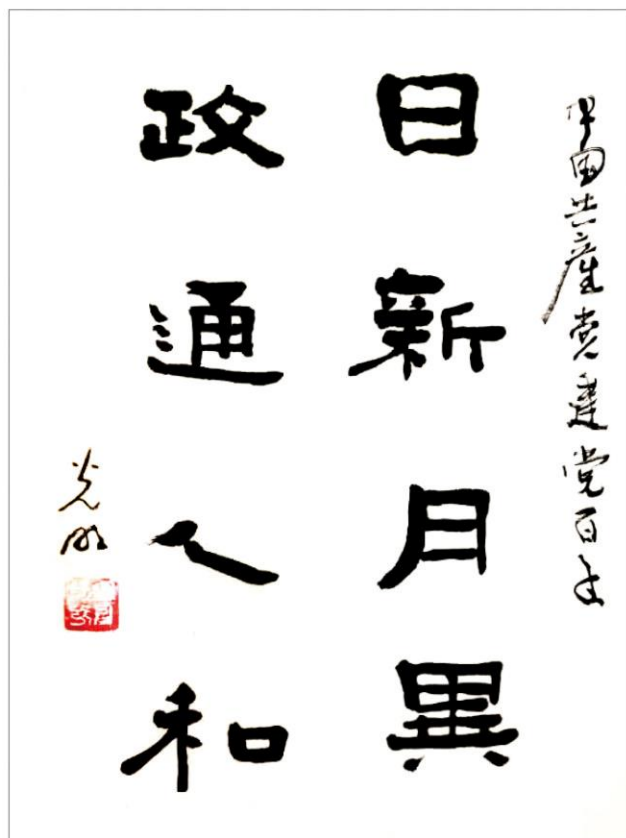 中国共产党建党百年
日新月異
政通人和
光明